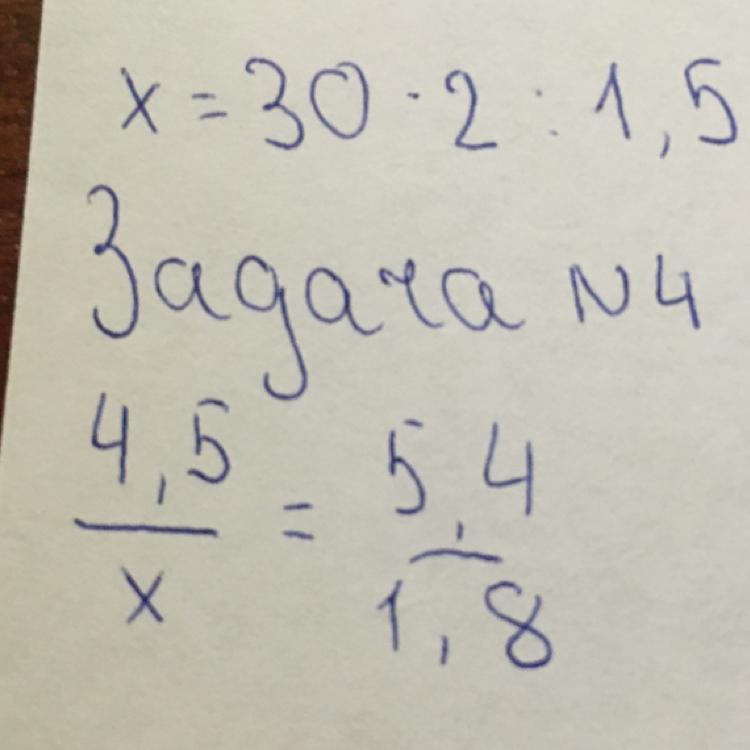 x = 30 · 2 : 1,5
Задача №4
4,5/x = 5,4/1,8